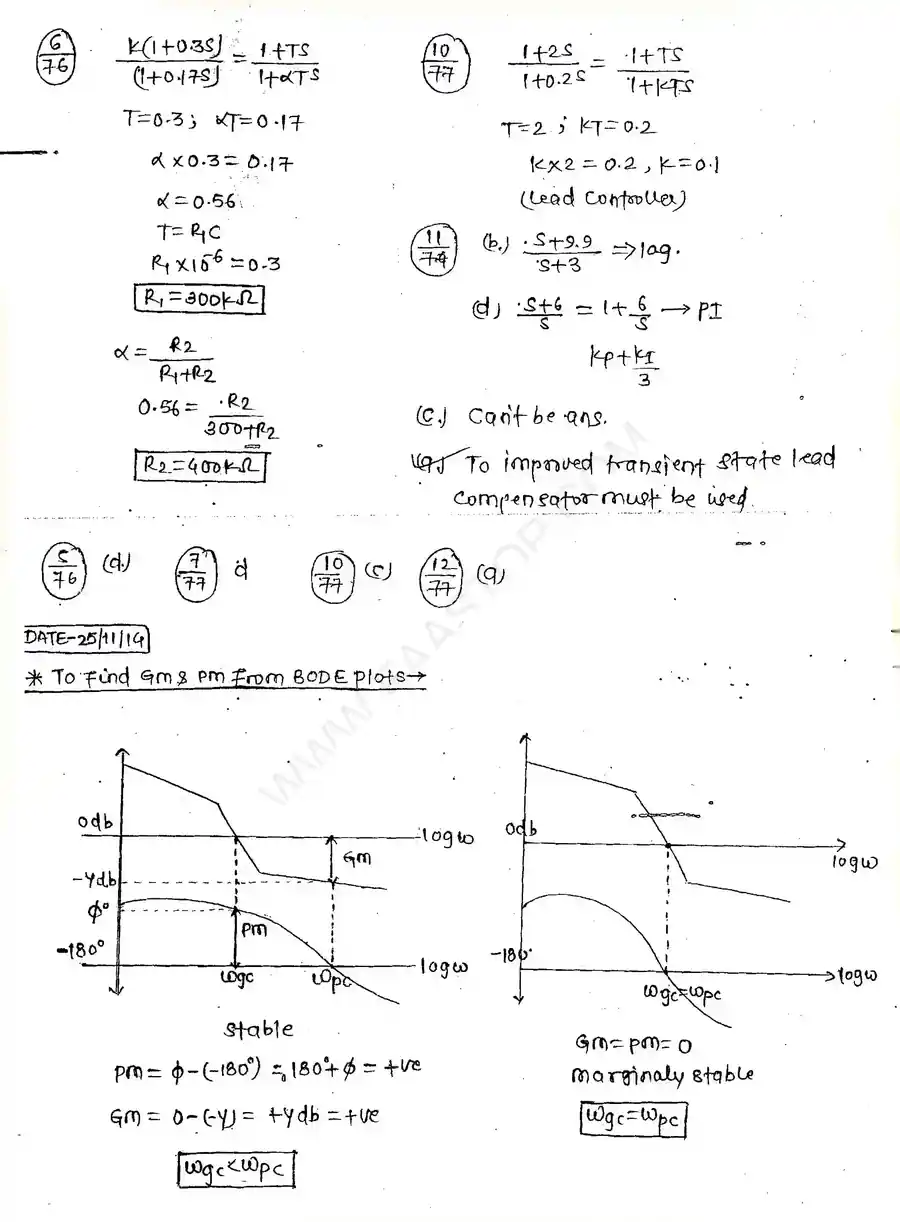 6/76 K(1+0.3S)/(1+0.17S) = 1+TS/1+αTS
T=0.3; αT=0.17
α×0.3=0.17
α=0.56
T=R₁C
R₁×10⁻⁶=0.3
R₁=300KΩ
α = R2/R₁+R2
0.56 = R2/300+R2
R2=400KΩ
10/77 1+2S/1+0.2S = 1+TS/1+KTS
T=2; KT=0.2
K×2=0.2, K=0.1
(Lead Controller)
11/74 (b.) S+9.9/S+3 ⇒ lag.
(d) S+6/S = 1+6/S → PI
Kp+KI/3
(C.) Can't be ans.
(a) To improved transient state lead
compensator must be used.
5/76 (d.) 7/77 d 10/77 (c) 12/77 (a)
DATE-25/11/14
* To Find Gm & PM From BODE plots→
0db
logω
Gm
-Ydb
φ°
PM
-180°
logω
ωgc
ωpc
Stable
PM = φ-(-180°) = 180°+φ = +ve
GM = 0-(-Y) = +Ydb = +ve
ωgc<ωpc
0db
logω
-180°
logω
ωgc=ωpc
GM=PM=0
Marginaly stable
ωgc=ωpc